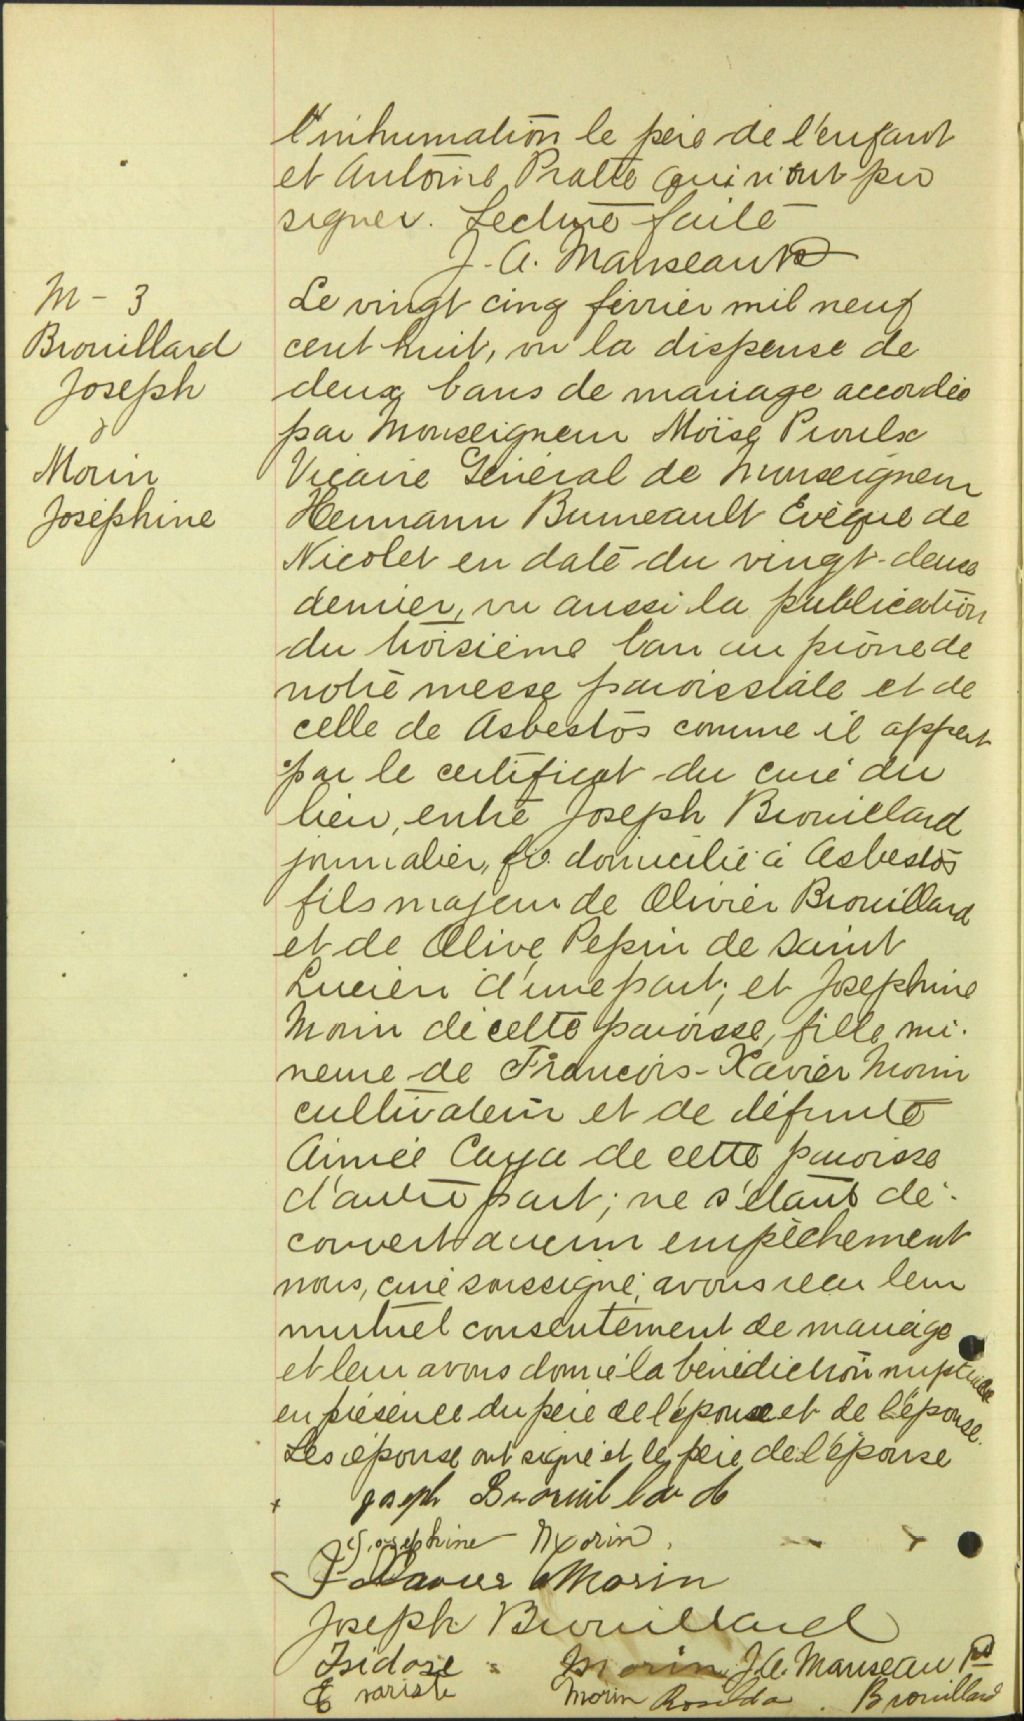 l'inhumation le père de l'enfant
et Antoine Pratte qui n'ont pu
signer. Lecture faite
J. A. Manseau Ptre
M - 3
Brouillard
Joseph
&
Morin
Joséphine
Le vingt cinq février mil neuf
cent huit, vu la dispense de
deux bans de mariage accordée
par Monseigneur Moïse Proulx
Vicaire Général de Monseigneur
Hermann Bruneault Evêque de
Nicolet en date du vingt-deux
dernier, vu aussi la publication
du troisième ban au prône de
notre messe paroissiale et de
celle de Asbestos comme il appert
par le certificat du curé du
lieu, entre Joseph Brouillard
journalier, domicilié à Asbestos
fils majeur de Olivier Brouillard
et de Olive Pepin de Saint
Lucien d'une part; et Joséphine
Morin de cette paroisse, fille mi-
neure de François-Xavier Morin
cultivateur et de défunte
Aimée Caya de cette paroisse
d'autre part; ne s'étant dé-
couvert aucun empêchement
nous, curé soussigné, avons reçu leur
mutuel consentement de mariage
et leur avons donné la bénédiction nuptiale
en présence du père de l'époux et de l'épouse.
Les époux ont signé et le père de l'épouse
+ Joseph Brouillard
Josephine Morin
F Xavier Morin
Joseph Brouillard
Isidore Morin J. A. Manseau Ptre
Evariste Morin Rosilda Brouillard